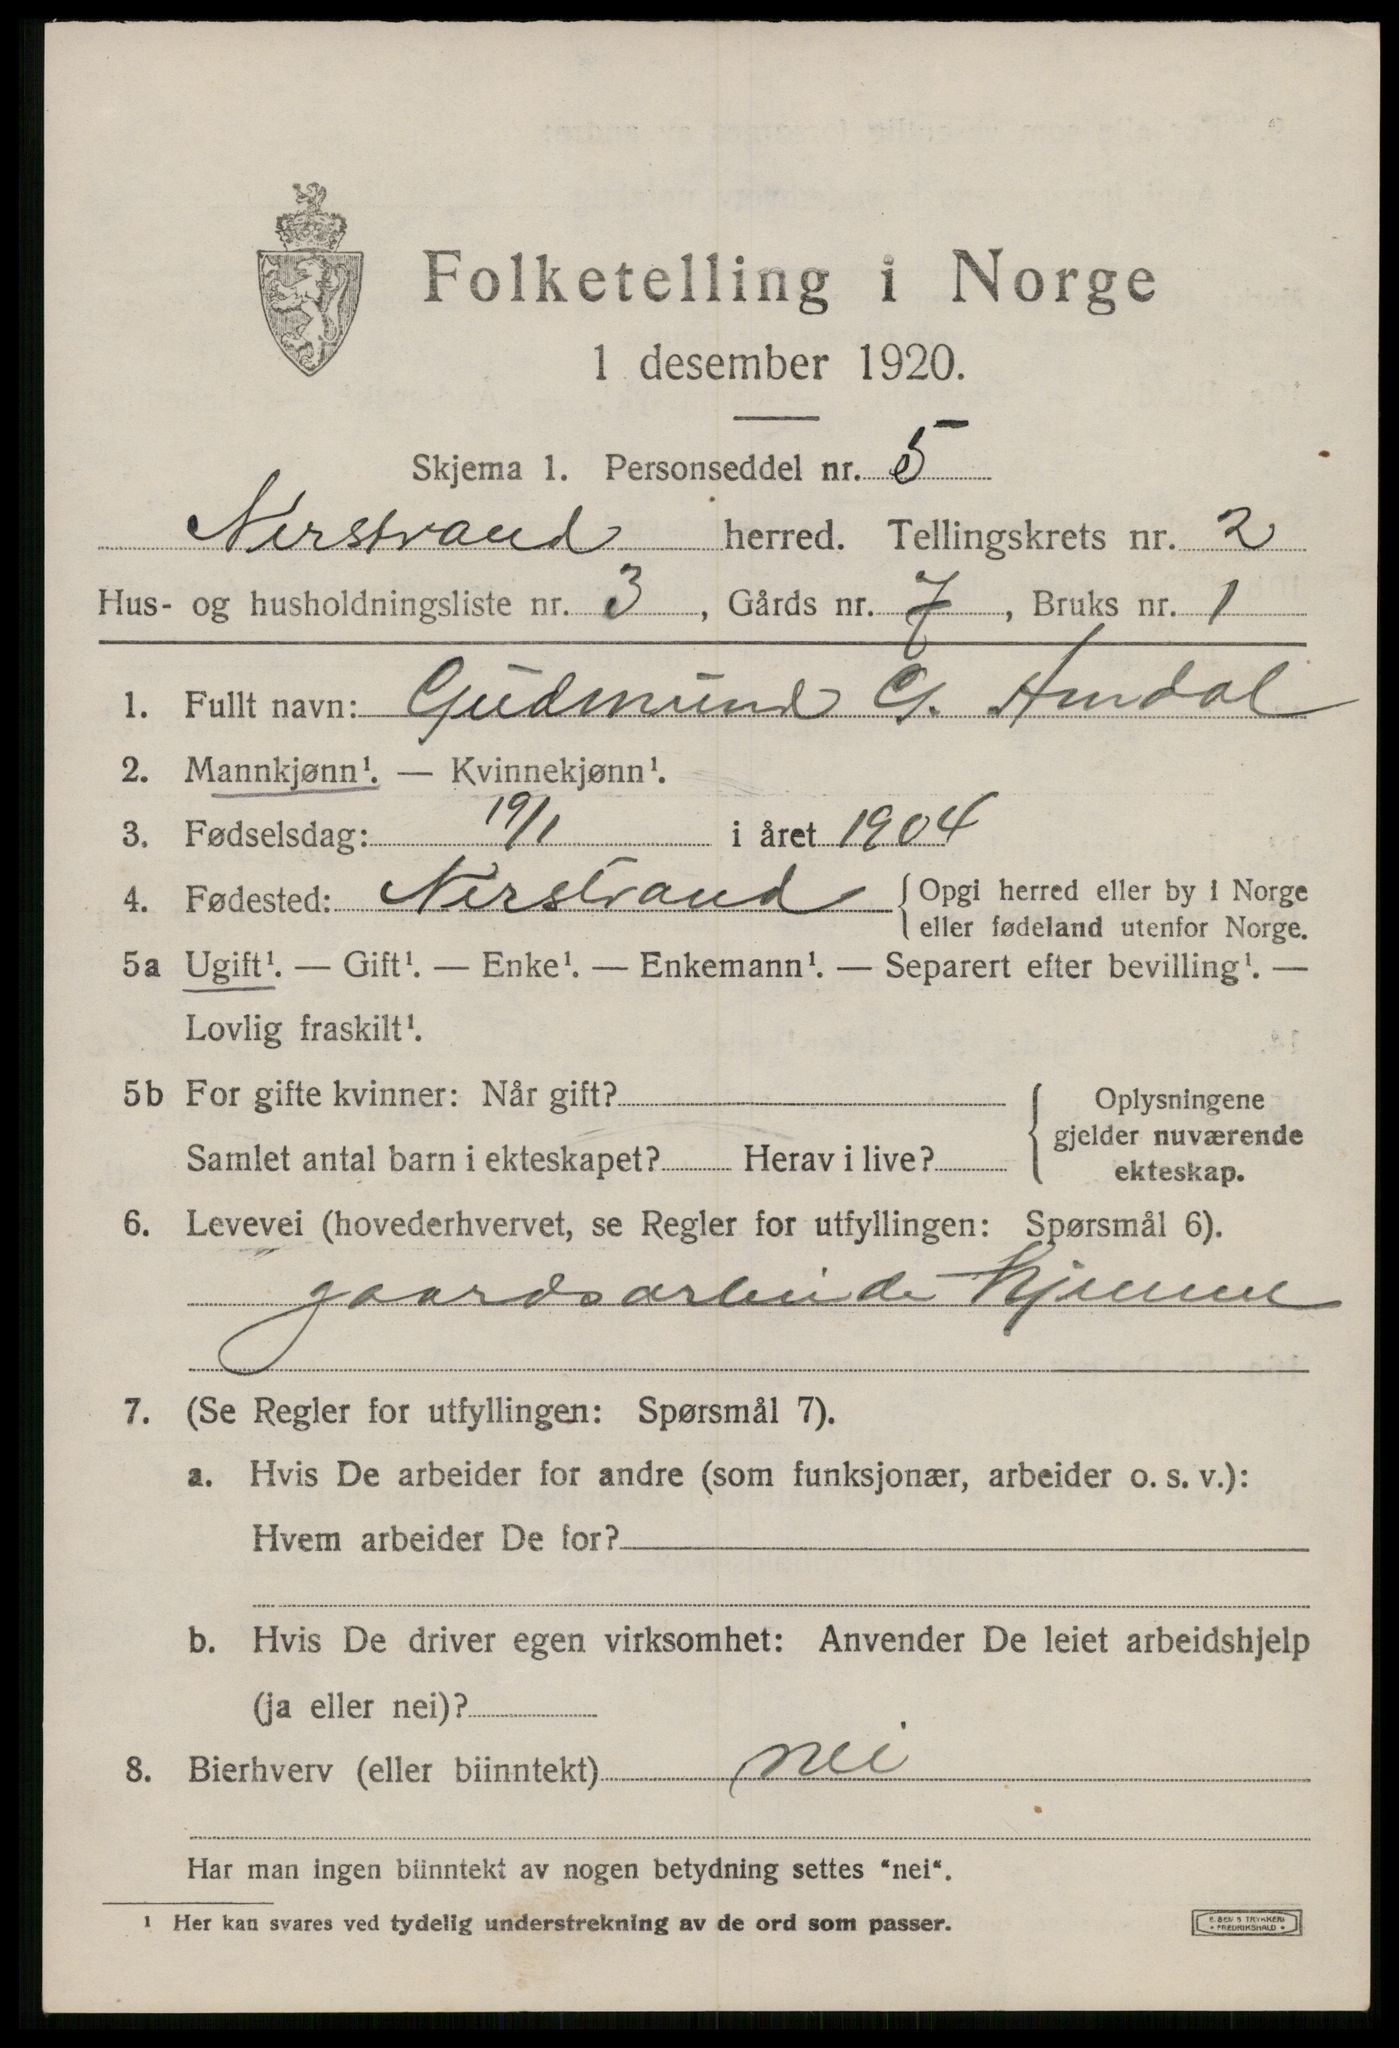 Folketelling i Norge
1 desember 1920.
Skjema 1. Personseddel nr. 5
Nerstrand herred. Tellingskrets nr. 2
Hus- og husholdningsliste nr. 3, Gårds nr. 7, Bruks nr. 1
1. Fullt navn: Gudmund G. Amdal
2. Mannkjønn¹. — Kvinnekjønn¹.
3. Fødselsdag: 19/1 i året 1904
4. Fødested: Nerstrand { Opgi herred eller by i Norge
eller fødeland utenfor Norge.
5a Ugift¹. — Gift¹. — Enke¹. — Enkemann¹. — Separert efter bevilling¹. —
Lovlig fraskilt¹.
5b For gifte kvinner: Når gift?
Samlet antal barn i ekteskapet? Herav i live?
{ Oplysningene
gjelder nuværende
ekteskap.
6. Levevei (hovederhvervet, se Regler for utfyllingen: Spørsmål 6).
gaardsarbeide hjemme
7. (Se Regler for utfyllingen: Spørsmål 7).
a. Hvis De arbeider for andre (som funksjonær, arbeider o. s. v.):
Hvem arbeider De for?
b. Hvis De driver egen virksomhet: Anvender De leiet arbeidshjelp
(ja eller nei)?
8. Bierhverv (eller biinntekt) nei
Har man ingen biinntekt av nogen betydning settes "nei".
¹ Her kan svares ved tydelig understrekning av de ord som passer.
TRYKKERI
FREDRIKSHALD